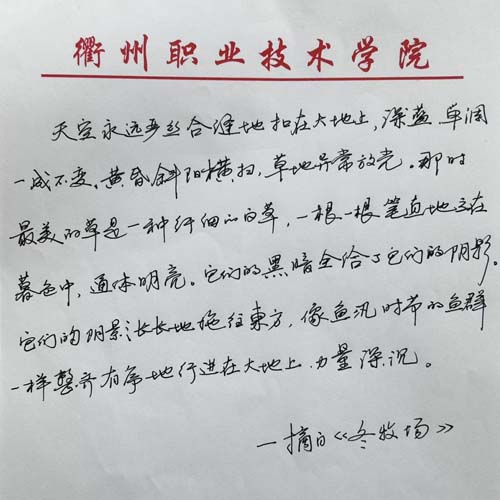 衢州职业技术学院
天空永远严丝合缝地扣在大地上，深蓝，单调，
一成不变。黄昏斜阳横扫，草地异常放光。那时
最美的草是一种纤细的白草，一根一根笔直地立在
暮色中，通体明亮。它们的黑暗全给了它们的阴影。
它们的阴影长长地拖往东方，像鱼汛时节的鱼群
一样整齐有序地行进在大地上，力量深沉。
一摘自《冬牧场》